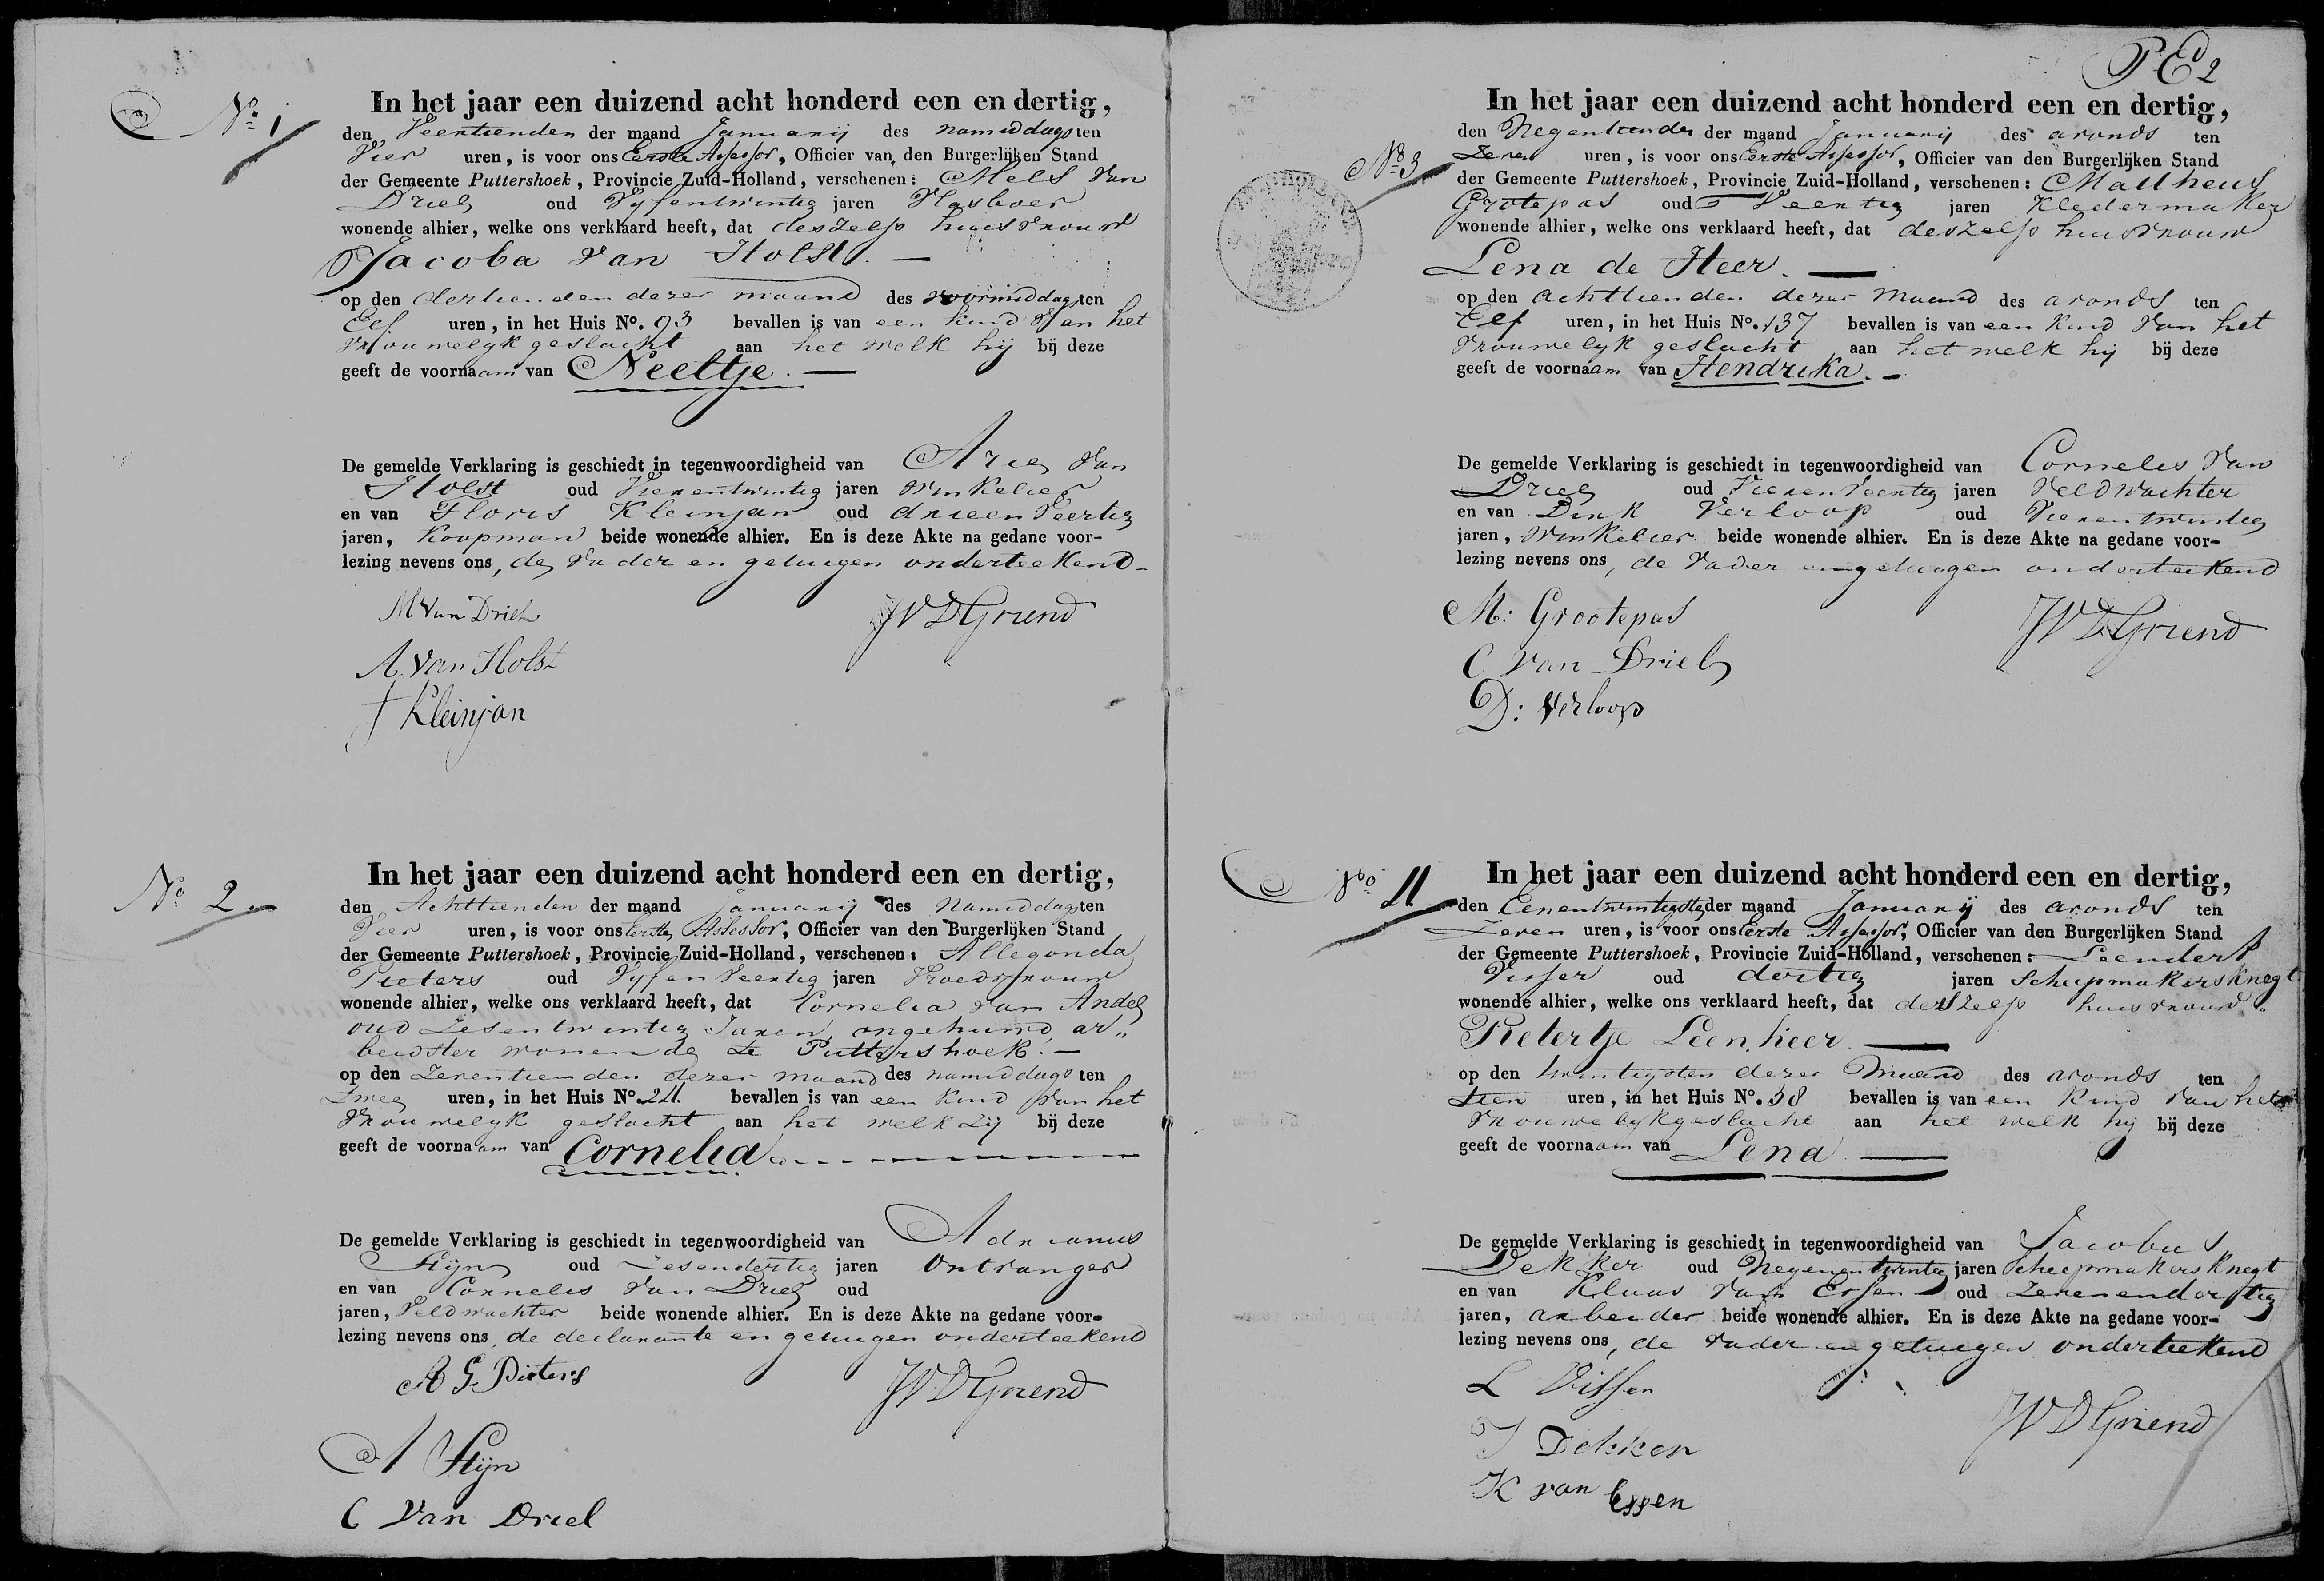 No 1
In het jaar een duizend acht honderd een en dertig,
den Veertienden der maand Januarij des namiddags ten
Vier uren, is voor ons Eerste Assessor, Officier van den Burgerlijken Stand
der Gemeente Puttershoek, Provincie Zuid-Holland, verschenen: Mels van
Driel oud Vyfentwintig jaren Vlasboer
wonende alhier, welke ons verklaard heeft, dat deszelfs huisvrouw
Jacoba van Holst. —
op den dertienden dezer maand des voormiddags ten
Elf uren, in het Huis No. 93 bevallen is van een kind van het
vrouwelyk geslacht aan het welk hij bij deze
geeft de voornaam van Neeltje. —
De gemelde Verklaring is geschiedt in tegenwoordigheid van Arie van
Holst oud Vierentwintig jaren Winkelier
en van Floris Kleinjan oud drieenveertig
jaren, Koopman beide wonende alhier. En is deze Akte na gedane voor-
lezing nevens ons, de vader en getuigen onderteekend
M van Driel
JVDGriend
A. van Holst
F Kleinjan
No 2
In het jaar een duizend acht honderd een en dertig,
den Achttienden der maand januarij des Namiddags ten
Vier uren, is voor ons Eerste Assessor, Officier van den Burgerlijken Stand
der Gemeente Puttershoek, Provincie Zuid-Holland, verschenen: Allegonda
Pieters oud Vyfenveertig jaren Vroedvrouw
wonende alhier, welke ons verklaard heeft, dat Cornelia van Andel
oud Zesentwintig Jaren, ongehuwd, ar„
beidster wonende te Puttershoek. —
op den Zeventienden dezer maand des namiddags ten
Twee uren, in het Huis No. 24. bevallen is van een kind van het
vrouwelyk geslacht aan het welk zij bij deze
geeft de voornaam van Cornelia
De gemelde Verklaring is geschiedt in tegenwoordigheid van Adrianus
Stijn oud Zesendertig jaren Ontvanger
en van Cornelis van Driel oud
jaren, Veldwachter beide wonende alhier. En is deze Akte na gedane voor-
lezing nevens ons, de declarante en getuigen onderteekend
A G Pieters
JVDGriend
A Stijn
C van Driel
No 3
In het jaar een duizend acht honderd een en dertig,
den Negentienden der maand Januarij des avonds ten
Zeven uren, is voor ons Eerste Assessor, Officier van den Burgerlijken Stand
der Gemeente Puttershoek, Provincie Zuid-Holland, verschenen: Mattheus
Grotepas oud Veertig jaren Kledermaker
wonende alhier, welke ons verklaard heeft, dat deszelfs huisvrouw
Lena de Heer. —
op den achttienden dezer maand des avonds ten
Elf uren, in het Huis No. 137 bevallen is van een kind van het
vrouwelyk geslacht aan het welk hij bij deze
geeft de voornaam van Hendrika. —
De gemelde Verklaring is geschiedt in tegenwoordigheid van Cornelis van
Driel oud Vierenveertig jaren Veldwachter
en van Dirk Verloop oud Vierentwintig
jaren, Winkelier beide wonende alhier. En is deze Akte na gedane voor-
lezing nevens ons, de vader en getuigen onderteekend
M: Grootepas
JVDGriend
C van Driel
D: Verloop
No 4
In het jaar een duizend acht honderd een en dertig,
den Eenentwintigste der maand Januarij des avonds ten
Zeven uren, is voor ons Eerste Assessor, Officier van den Burgerlijken Stand
der Gemeente Puttershoek, Provincie Zuid-Holland, verschenen: Leendert
Visser oud dertig jaren Scheepmakersknegt
wonende alhier, welke ons verklaard heeft, dat deszelfs huisvrouw
Pietertje Leenheer. —
op den twintigsten dezer Maand des avonds ten
tien uren, in het Huis No. 38 bevallen is van een kind van het
vrouwelykgeslacht aan het welk hij bij deze
geeft de voornaam van Lena —
De gemelde Verklaring is geschiedt in tegenwoordigheid van Jacobus
Dekker oud Negenentwintig jaren Scheepmakersknegt
en van Klaas van Essen oud Zevenendertig
jaren, arbeider beide wonende alhier. En is deze Akte na gedane voor-
lezing nevens ons, de vader en getuigen onderteekend
L Visser
JVDGriend
J Dekker
K van Essen